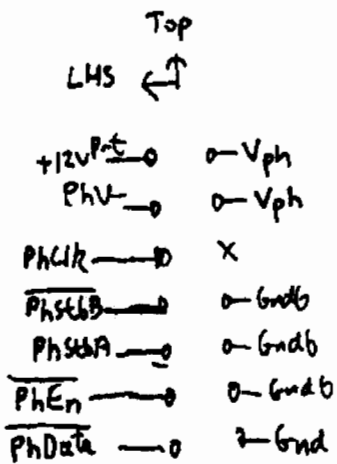 Top
LHS
+12V Prt Vph
PhV Vph
PhClk X
PhStbB Gndb
PhSthA Gndb
PhEn Gndb
PhData Gnd